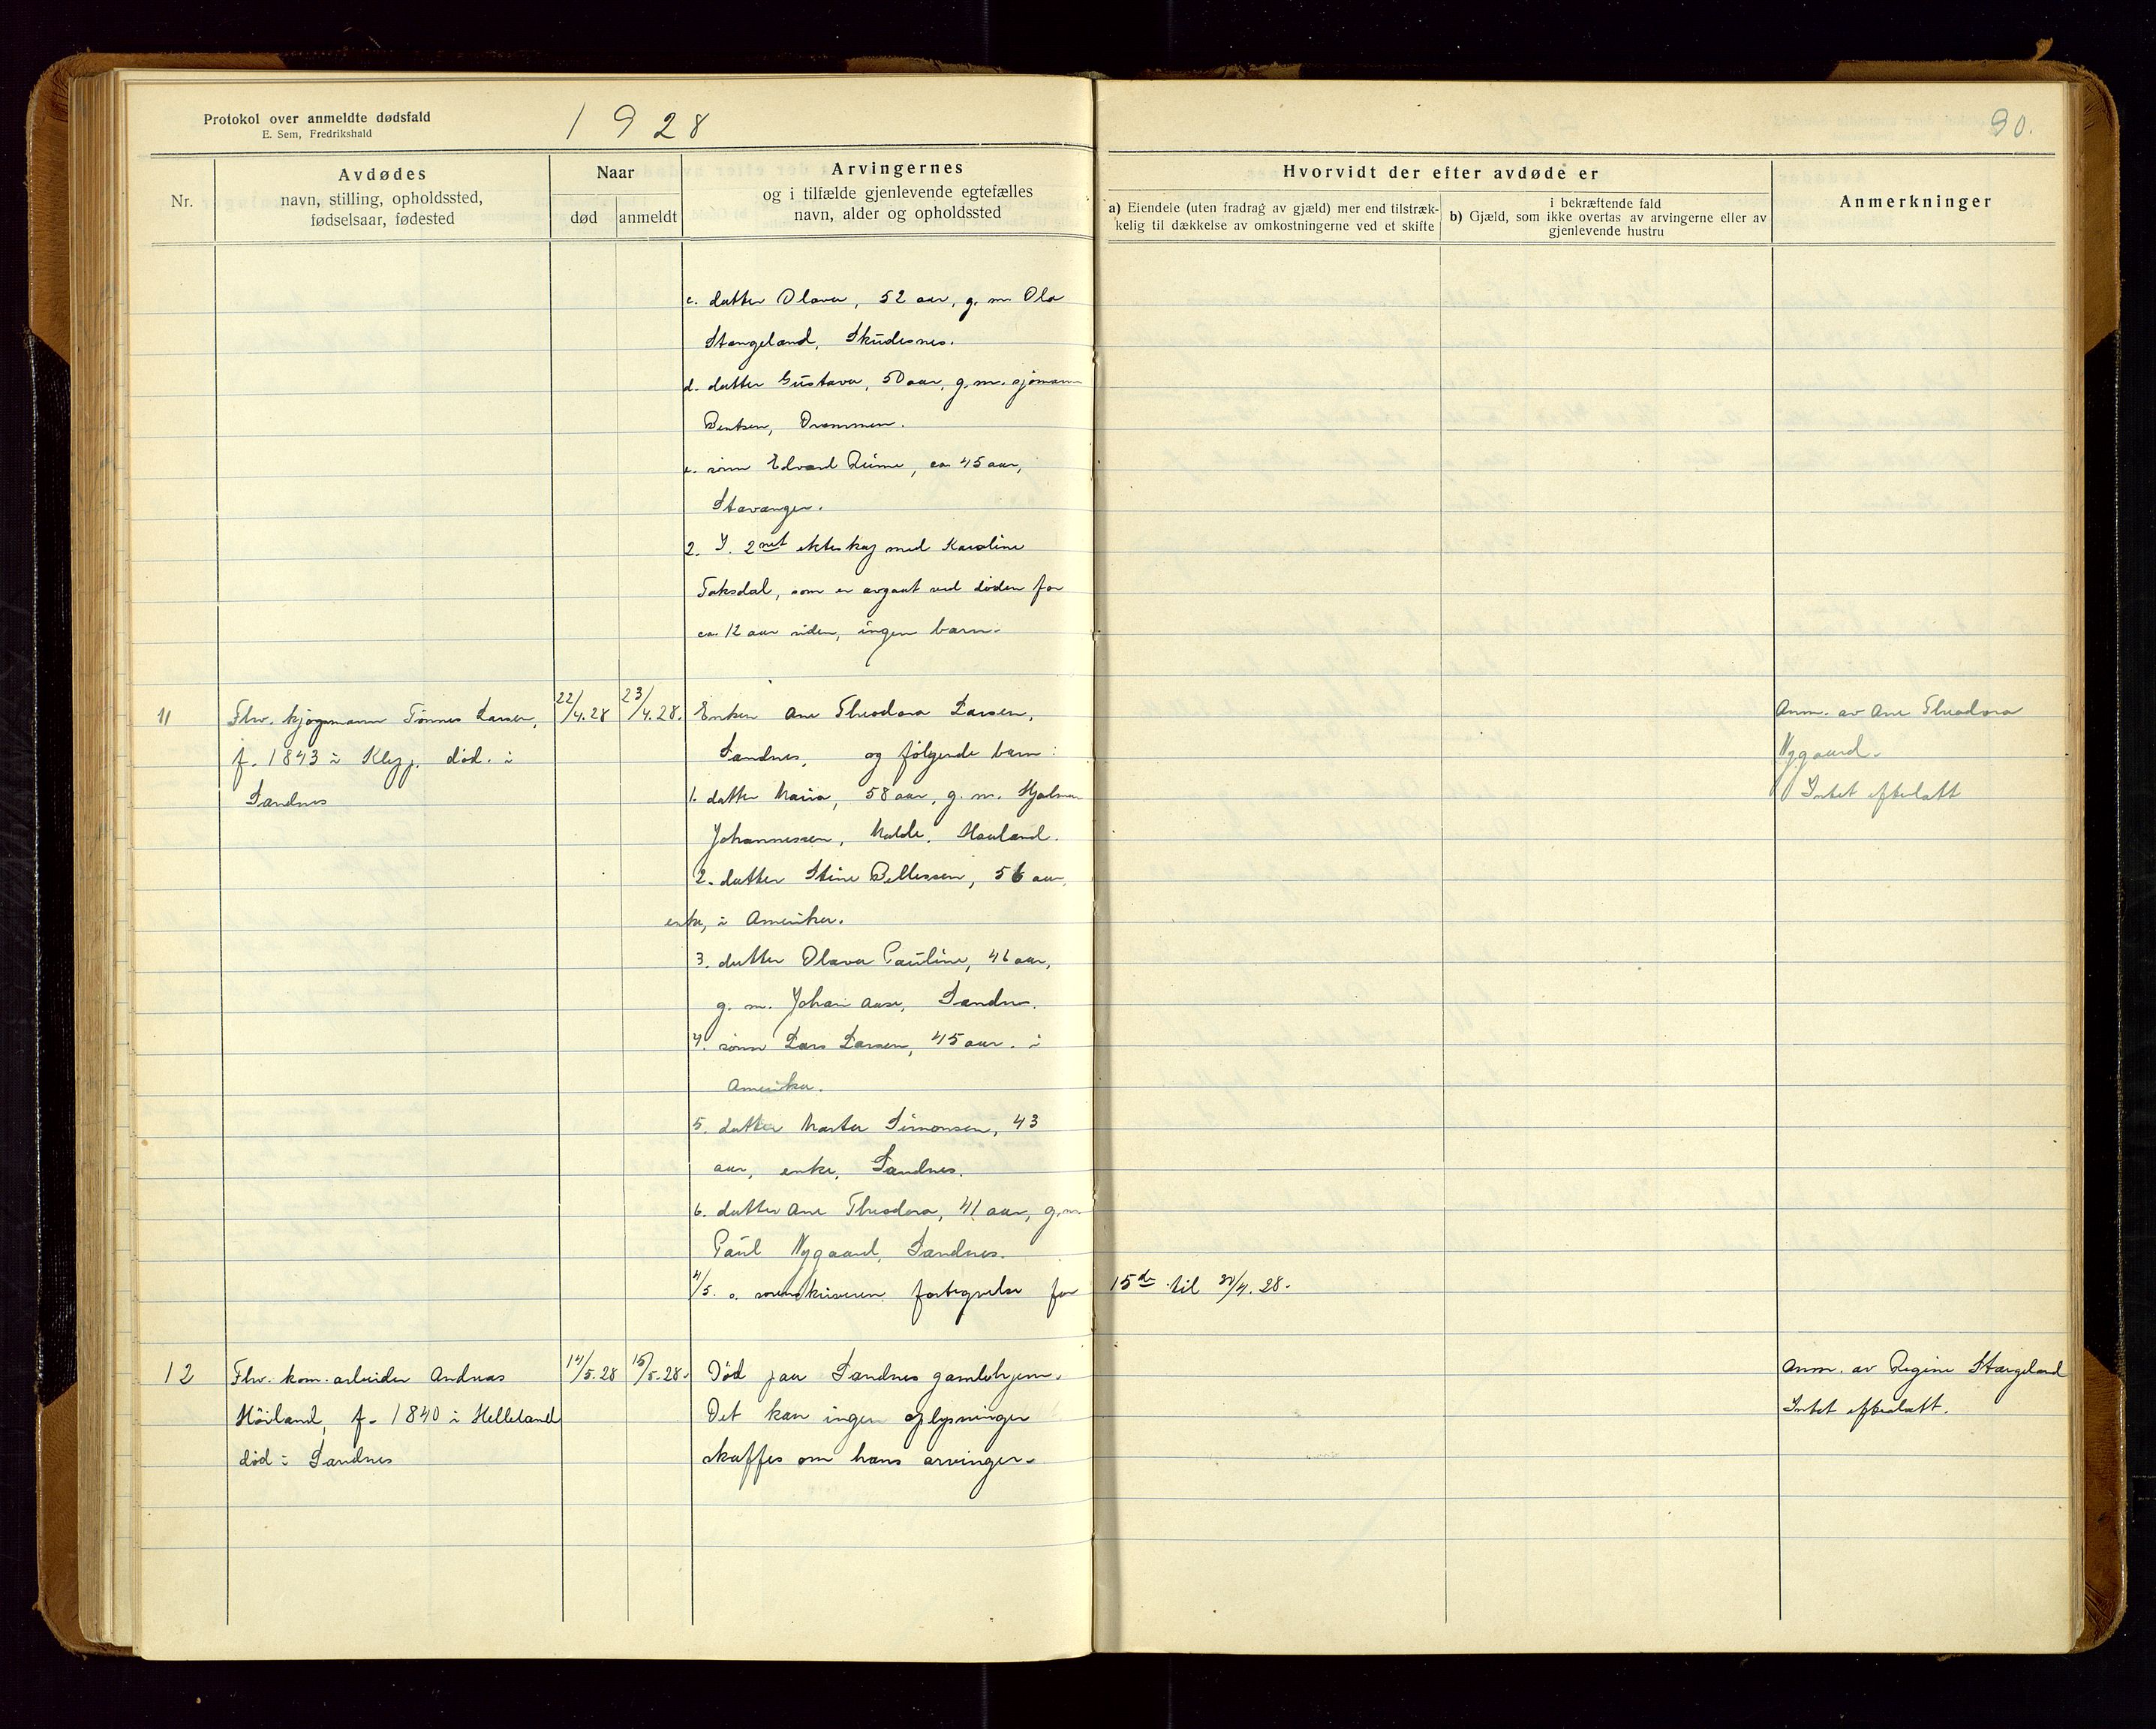 Protokol over anmeldte dødsfald
E. Sem, Fredrikshald
1928
90.
Nr.
Avdødes
navn, stilling, opholdssted,
fødselsaar, fødested
Naar
død
anmeldt
Arvingernes
og i tilfælde gjenlevende egtefælles
navn, alder og opholdssted
Hvorvidt der efter avdøde er
a) Eiendele (uten fradrag av gjæld) mer end tilstræk-
kelig til dækkelse av omkostningerne ved et skifte
i bekræftende fald
b) Gjæld, som ikke overtas av arvingerne eller av
gjenlevende hustru
Anmerkninger
c. datter Olava, 52 aar, g. m. Ola
Stangeland, Skudesnes.
d. datter Gustava, 50 aar, g. m. sjömann
Bentsen, Drammen.
e. sönn Edvard Reime, ca. 45 aar,
Stavanger.
2. I. 2net ekteskap med Karoline
Taksdal, som er avgaat ved döden for
ca. 12 aar siden, ingen barn.
11
Fhv. kjøpmann Tönnes Larsen,
f. 1843 i Klepp. död. i
Sandnes
22/4.28
23/4.28.
Enken Ane Theodora Larsen,
Sandnes, og fölgende barn:
1. datter Maria, 58 aar, g. m. Hjalmar
Johannessen, Malde, Hauland.
2. datter Stine Bellessen, 56 aar,
enke, i Amerika.
3. datter Olava Pauline, 46 aar,
g. m. Johan Aase, Sandnes.
4. sönn Lars Larsen, 45 aar. i
Amerika.
5. datter Marta Simonsen, 43
aar, enke, Sandnes.
6. datter Ane Theodora, 41 aar, g. m.
Paul Nygaard, Sandnes.
Anm. av Ane Theodora
Nygaard.
Intet efterlatt
4/5. s. sorenskriveren fortegnelse for 15de til 30/4.28.
12
Fhv. kom. arbeider Andreas
Höiland, f. 1840 i Helleland
död i Sandnes
14/5.28
15/5.28.
Död paa Sandnes gamlehjem.
Det kan ingen oplysninger
skaffes om hans arvinger.
Anm. av Regine Stangeland
Intet efterlatt.